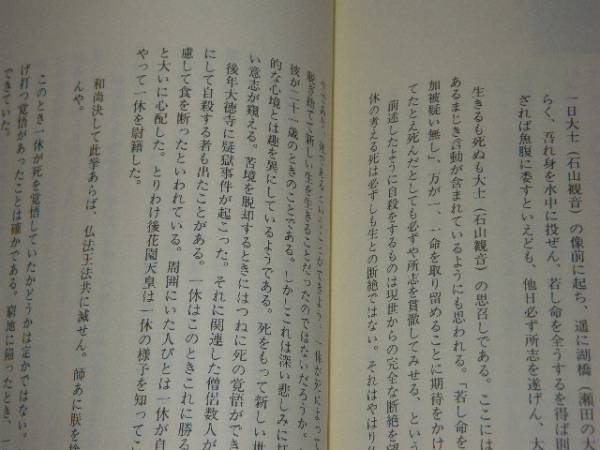 一日大士(石山観音)の像前に起ち、遥に湖橋(瀬田の大
らく、吾れ身を水中に投ぜん、若し命を全うするを得ば則
ざれば魚腹に委すといえども、他日必ず所志を遂げん、大
生きるも死ぬも大士(石山観音)の思召しである。ここには
あるまじき言動が含まれているようにも思われる。「若し命を
加被疑い無し」、万が一、一命を取り留めることに期待をかけ
てたとえ死んだとしても必ずや所志を貫徹してみせる、という
前述したように自殺をするものは現世からの完全な断絶を望
休の考える死は必ずしも生との断絶ではない。それはやはり
一休が死によって
脱ぎ捨てて新しい生を生きることだったのではないだろうか。
彼が二十一歳のときのことである。しかしこれは深い悲しみに
的な心境とは趣を異にしているようである。死をもって新しい世
い意志が窺える。苦境を脱却するときにはつねに死の覚悟ができ
後年大徳寺に疑獄事件が起こった。それに関連した僧侶数人が
にして自殺する者も出たことがある。一休はこのときこれに勝る
慮して食を断ったといわれている。周囲にいた人びとは一休が自
と大いに心配した。とりわけ後花園天皇は一休の様子を知ってこ
やって一休を慰籍した。
和尚決して此挙あらば、仏法王法共に滅せん。師あに朕を
んや。
このとき一休が死を覚悟していたかどうかは定かではない。
げ打つ覚悟があったことは確かである。窮地に陥ったとき、一
できていた。